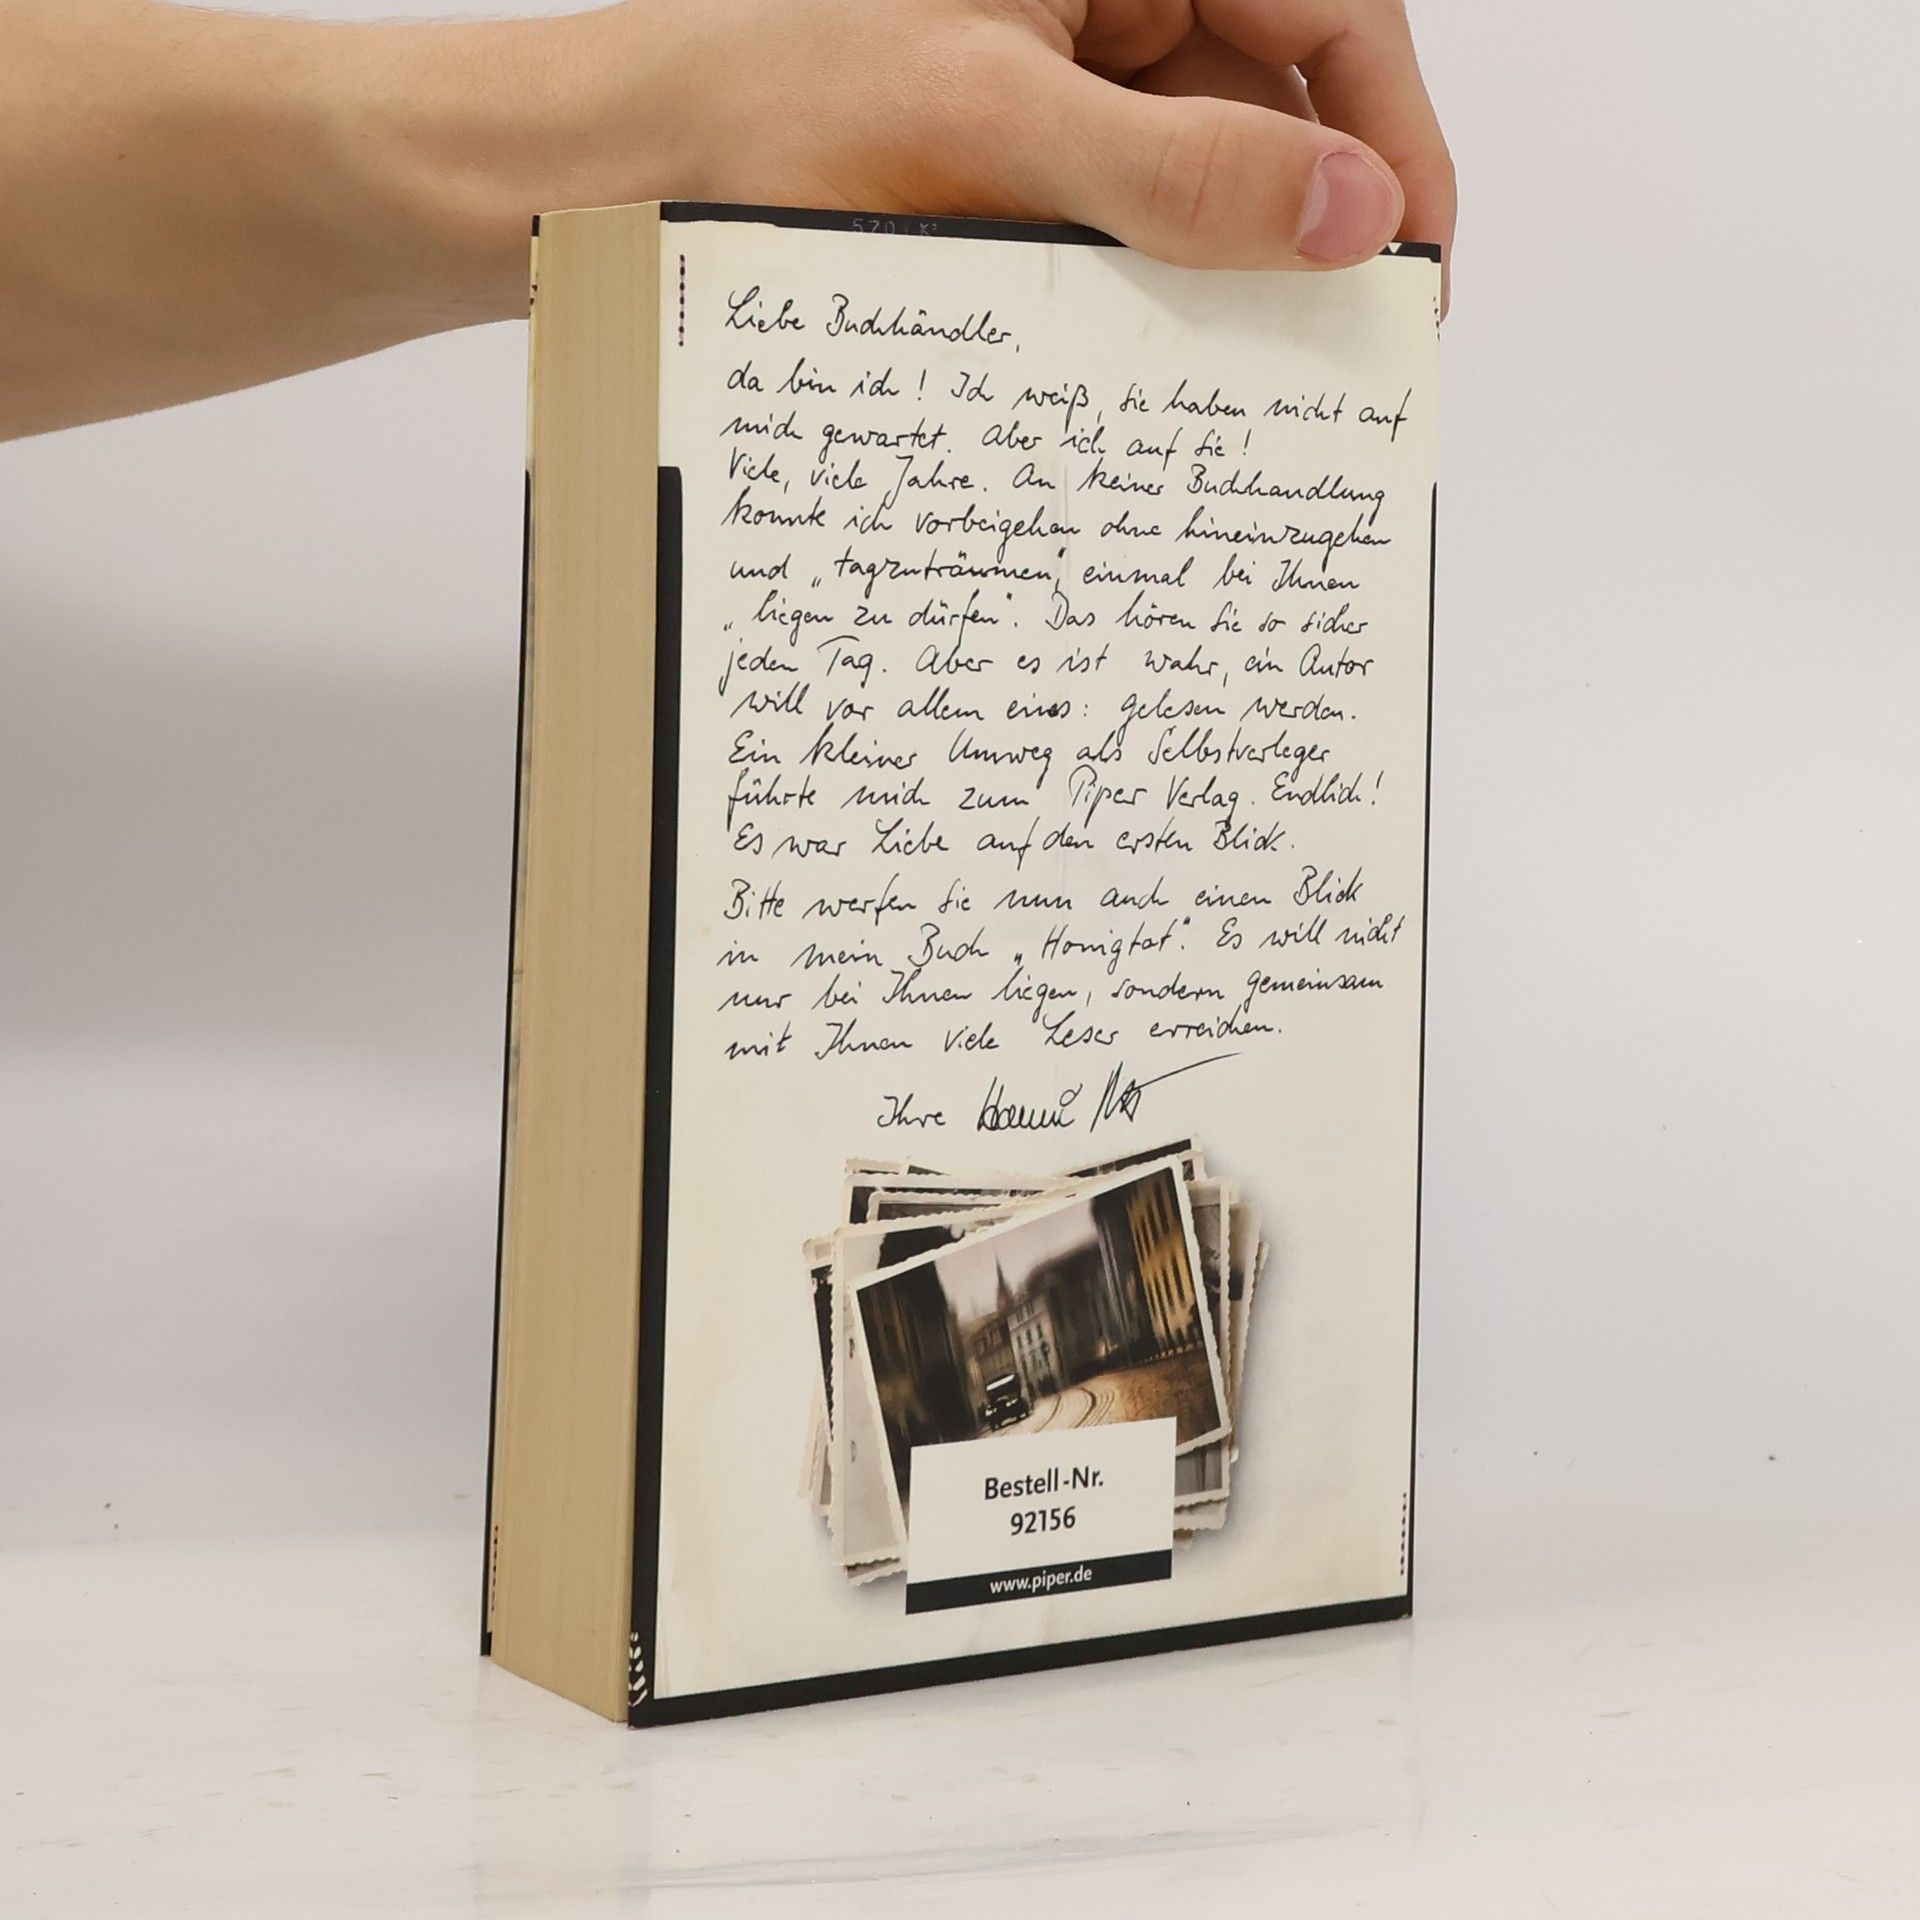 Liebe Buchhändler,
da bin ich! Ich weiß, Sie haben nicht auf
mich gewartet. Aber ich auf Sie!
Viele, viele Jahre. An keiner Buchhandlung
konnte ich vorbeigehen ohne hineinzugehen
und „tagzuträumen", einmal bei Ihnen
„liegen zu dürfen". Das hören Sie so sicher
jeden Tag. Aber es ist wahr, ein Autor
will vor allem eines: gelesen werden.
Ein kleiner Umweg als Selbstverleger
führte mich zum Piper Verlag. Endlich!
Es war Liebe auf den ersten Blick.
Bitte werfen Sie nun auch einen Blick
in mein Buch „Honigtot". Es will nicht
nur bei Ihnen liegen, sondern gemeinsam
mit Ihnen viele Leser erreichen.
Ihre Hanni
Bestell-Nr.
92156
www.piper.de